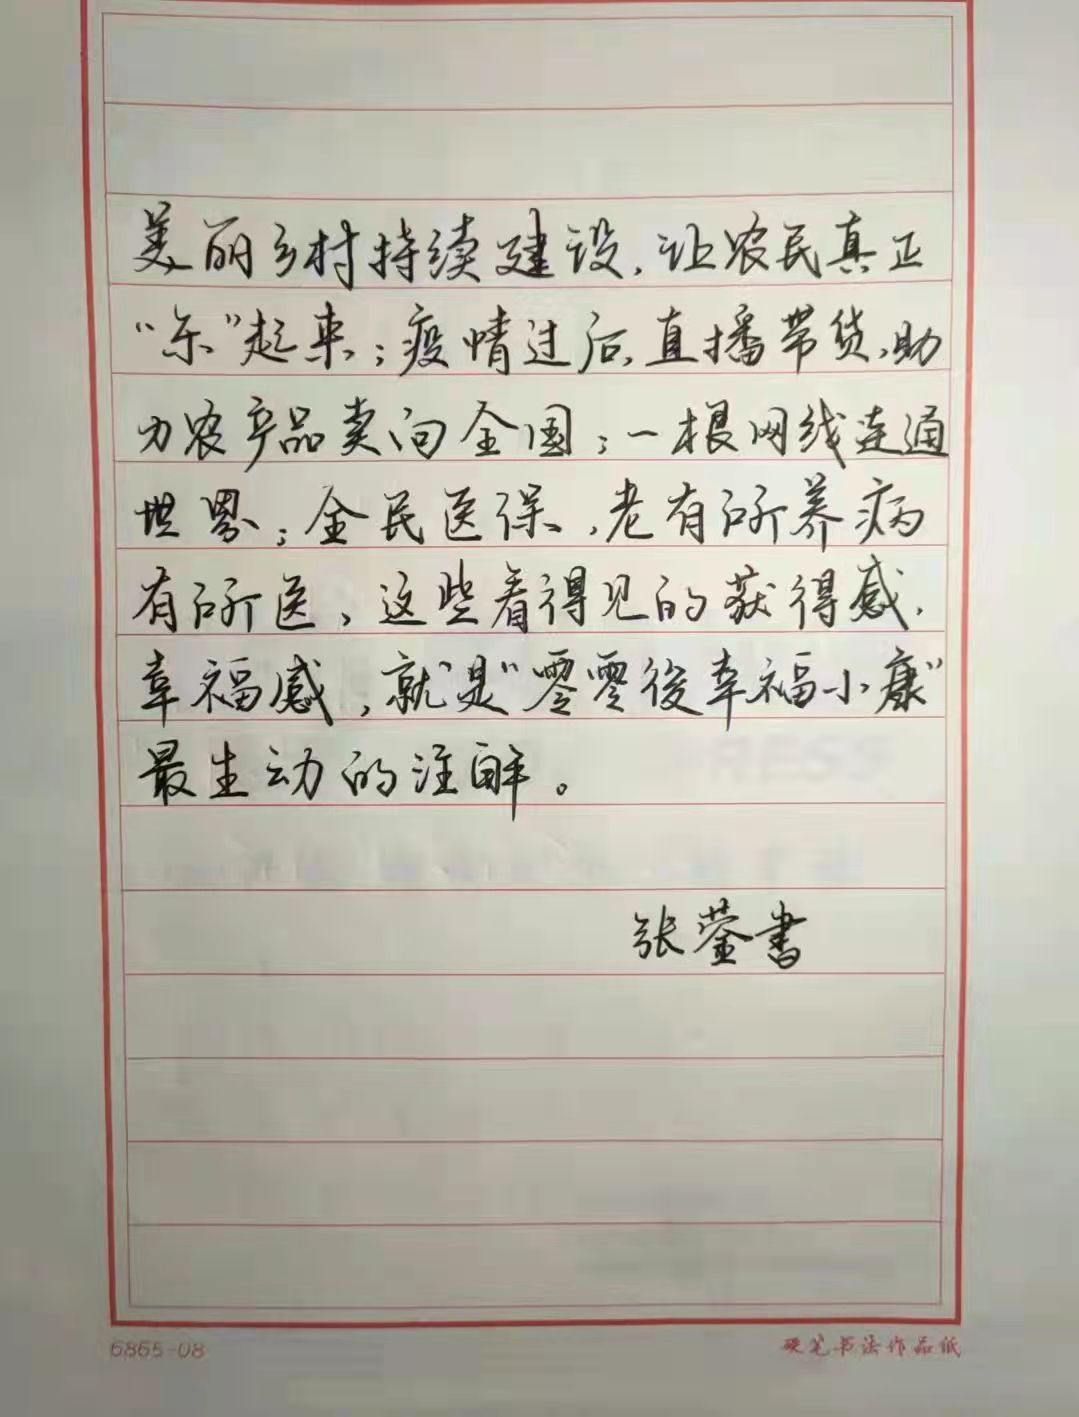 美丽乡村持续建设，让农民真正
“乐”起来；疫情过后，直播带货，助
力农产品卖向全国；一根网线连通
世界；全民医保，老有所养病
有所医，这些看得见的获得感，
幸福感，就是“零零後幸福小康”
最生动的注解。
张蓥書
6865-08
硬笔书法作品纸